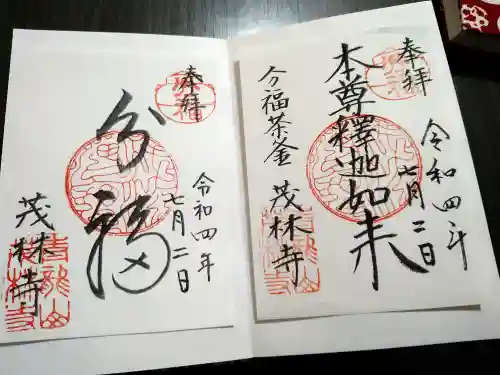 奉拝
本尊釋迦如来
令和四年
七月二日
分福茶釜
茂林寺
奉拝
分福
令和四年
七月二日
茂林寺